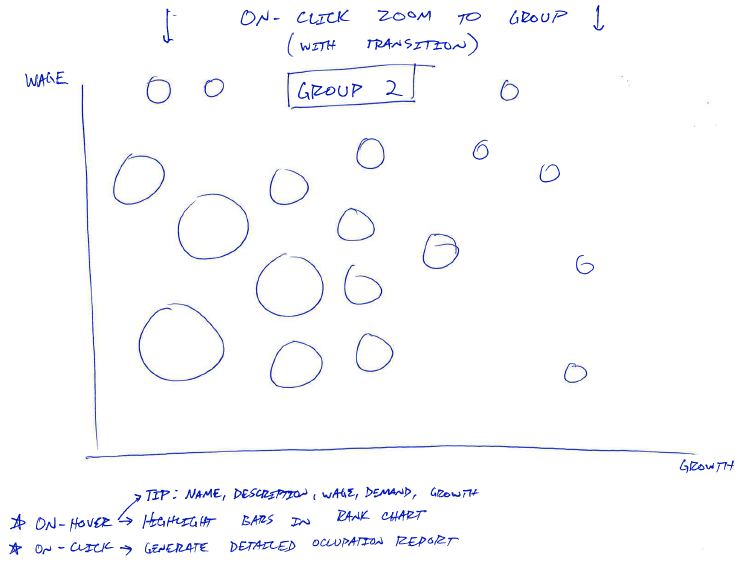 ON-CLICK ZOOM TO GROUP
(WITH TRANSITION)
WAGE
GROUP 2
GROWTH
TIP: NAME, DESCRIPTION, WAGE, DEMAND, GROWTH
☆ ON-HOVER → HIGHLIGHT BARS IN RANK CHART
☆ ON-CLICK → GENERATE DETAILED OCCUPATION REPORT